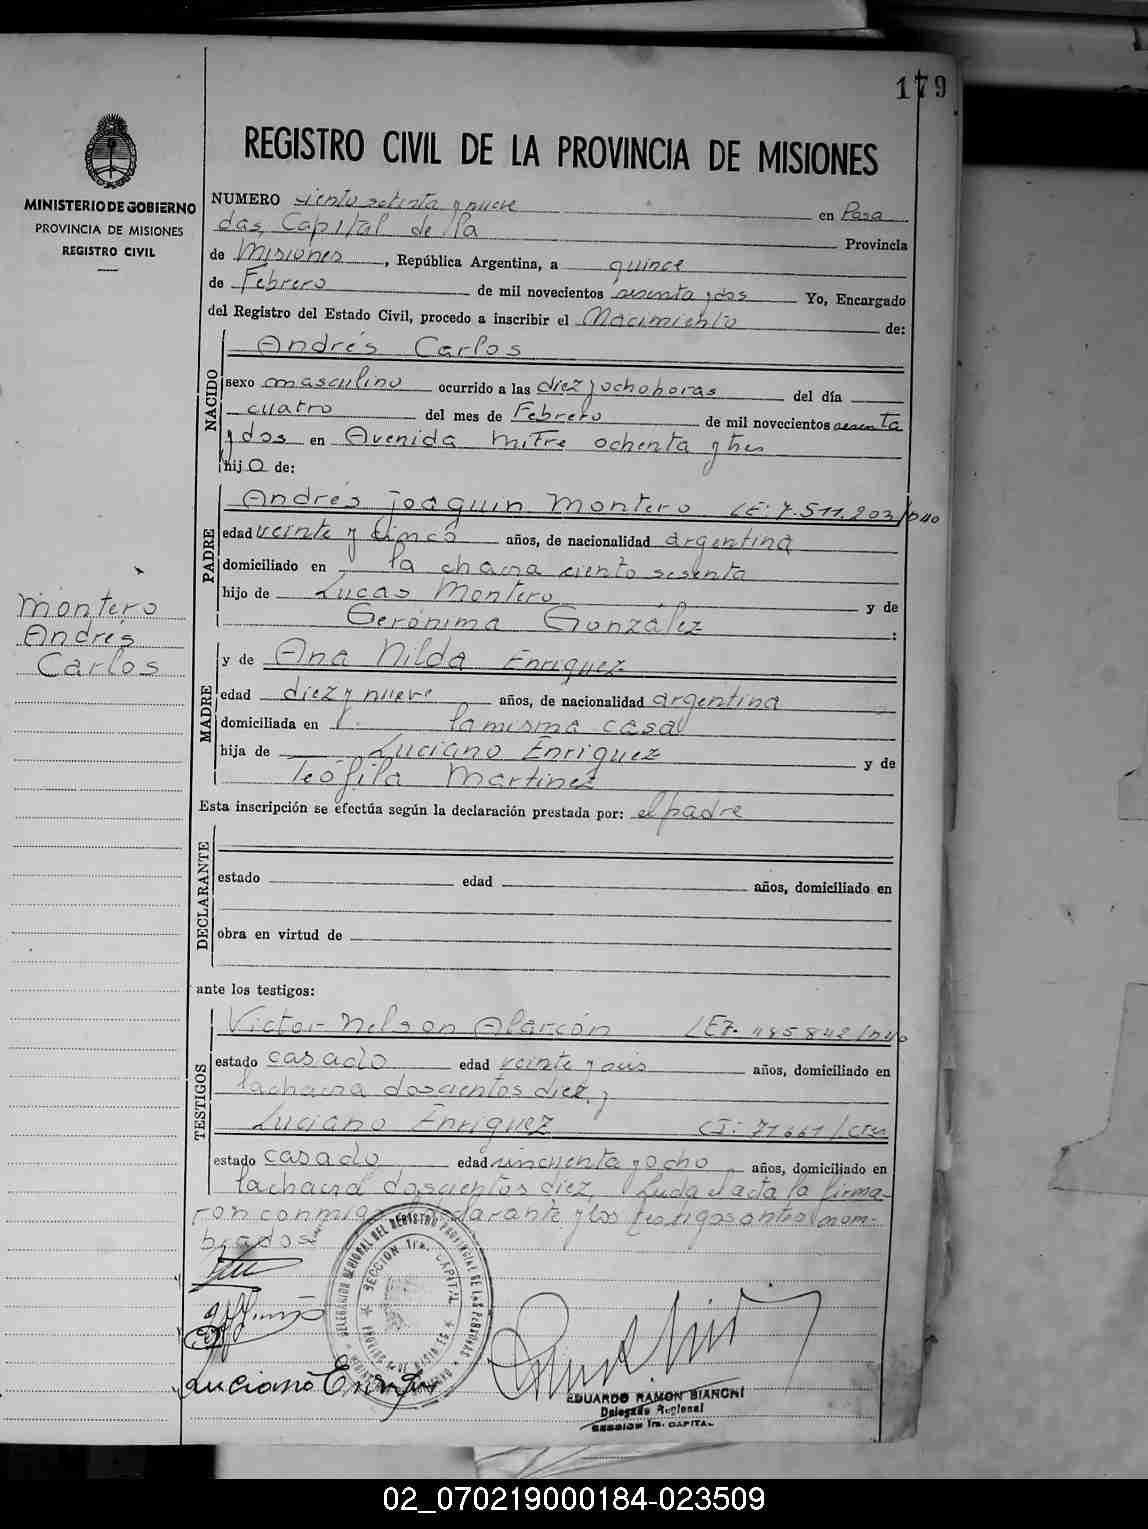 179
REGISTRO CIVIL DE LA PROVINCIA DE MISIONES
MINISTERIO DE GOBIERNO
PROVINCIA DE MISIONES
REGISTRO CIVIL
NUMERO ciento setenta y nueve en Posa
das, Capital de la Provincia
de Misiones, República Argentina, a quince
de Febrero de mil novecientos sesenta y dos Yo, Encargado
del Registro del Estado Civil, procedo a inscribir el Nacimiento de:
NACIDO
Andrés Carlos
sexo masculino ocurrido a las diez y ocho horas del día
cuatro del mes de Febrero de mil novecientos sesenta
y dos en Avenida Mitre ochenta y tres
hijo de:
PADRE
Andrés Joaquin Montero LE: 7.511.203/D40
edad veinte y cinco años, de nacionalidad argentina
domiciliado en la chacra ciento sesenta
hijo de Lucas Montero y de
Gerónima González :
Montero
Andrés
Carlos
MADRE
y de Ana Nilda Enriquez
edad diez y nueve años, de nacionalidad argentina
domiciliada en la misma casa
hija de Luciano Enriquez y de
Teófila Martinez
Esta inscripción se efectúa según la declaración prestada por: el padre
DECLARANTE
estado edad años, domiciliado en
obra en virtud de
ante los testigos:
TESTIGOS
Victor Nelson Alarcón LE 7.485.842/D40
estado casado edad veinte y seis años, domiciliado en
la chacra doscientos diez, y
Luciano Enriquez CI: 71661/Ctes
estado casado edad cincuenta y ocho años, domiciliado en
la chacra doscientos diez. Leida el acta la firma-
ron conmigo declarante y los testigos antes nom-
brados
DELEGACION REGIONAL DEL REGISTRO PROVINCIAL DE LAS PERSONAS
SECCION 1ra. CAPITAL
Luciano Enriquez
EDUARDO RAMON BIANCHI
Delegado Regional
SECCION 1ra. CAPITAL
02_070219000184-023509